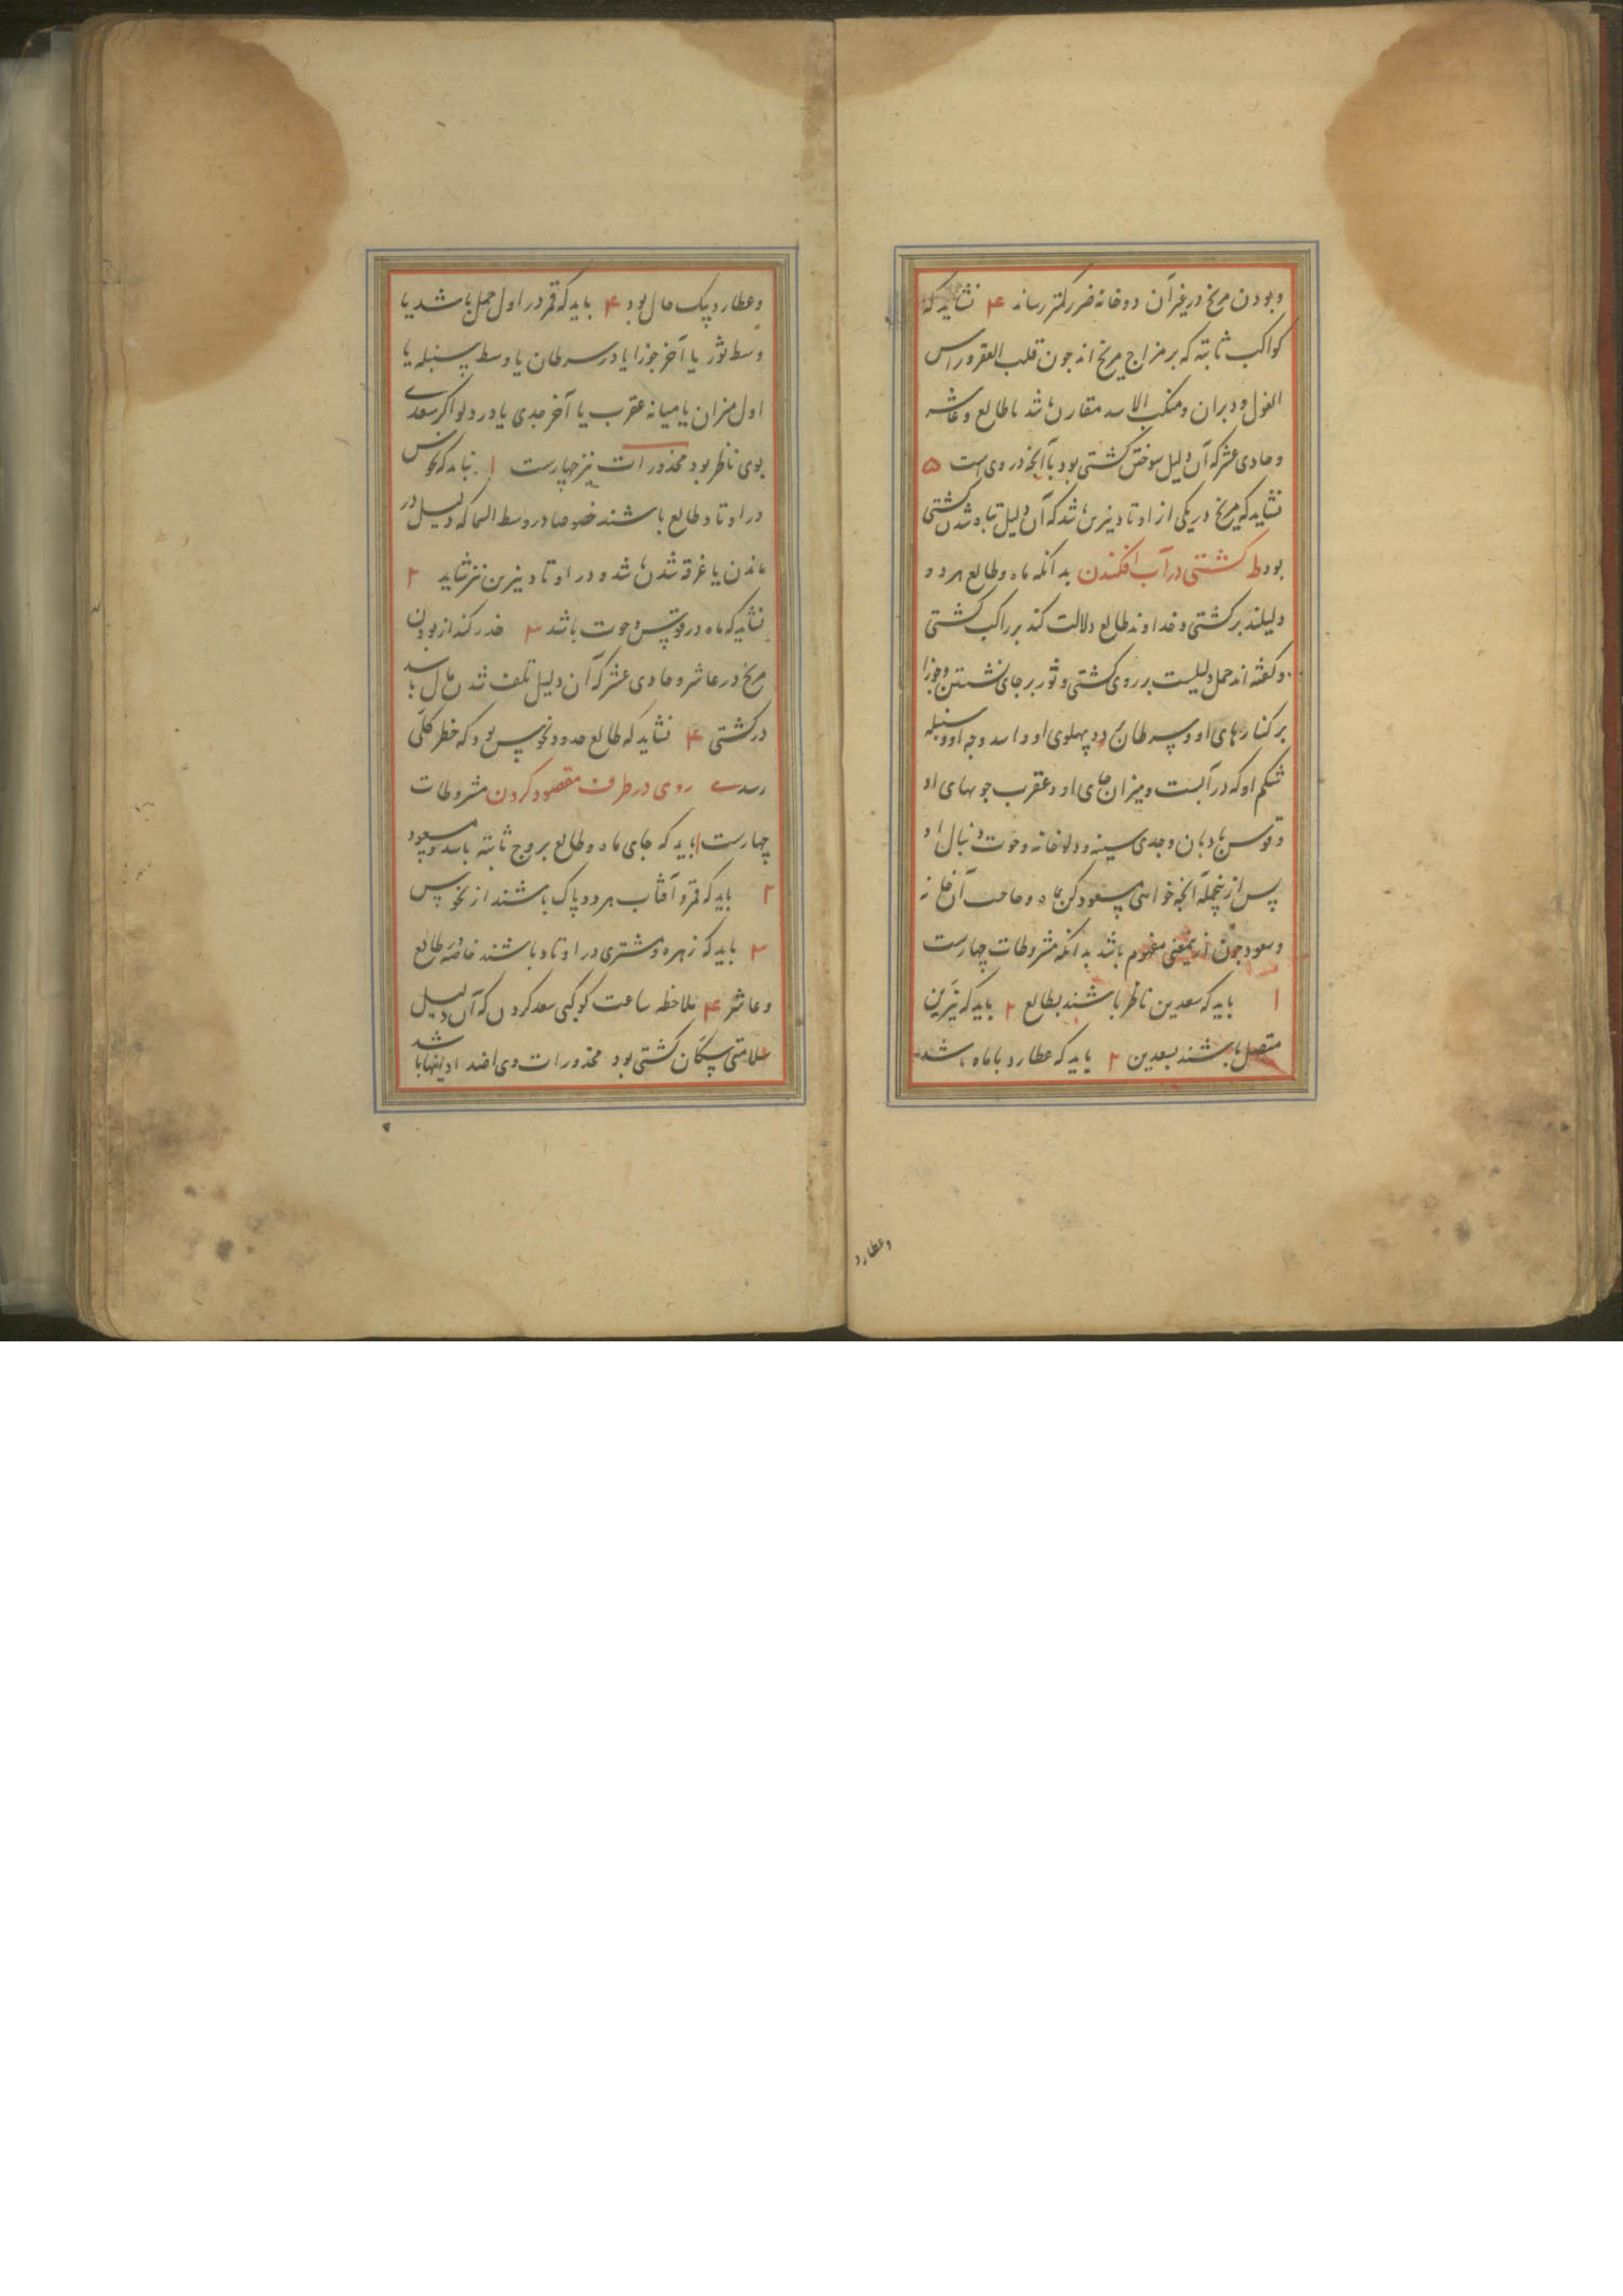 و بودن مریخ در غیر آن دو خانه ضرر کمتر رساند ۴ نشاید که
کواکب ثابته که بر مزاج مریخ اند چون قلب العقرب و راس
الغول و دبران و منکب الاسد مقارن باشد با طالع و عاشر
و حادی عشر که آن دلیل سوختن کشتی بود با آنچه در وی است ۵
نشاید که مریخ در یکی از اوتاد نیرین باشد که آن دلیل تباه شدن کشتی
بود ط کشتی در آب افکندن بدانکه ماه و طالع هر دو
دلیلند بر کشتی و خداوند طالع دلالت کند بر راکب کشتی
و گفته اند حمل دلیلست بر روی کشتی و ثور بر جای نشستن و جوزا
بر کنارهای او و سرطان بر دو پهلوی او و اسد و جه او و سنبله
شکم او که در آبست و میزان جای او و عقرب چوبهای او
و قوس بادبان و جدی سینه و دلو خانه و حوت دنبال او
پس ازینجمله آنچه خواهی مسعود کن بماه و صاحب آن خانه
و سعود چون ازیمعنی مفهوم باشد بدانکه مشروطات چهارست
۱ باید که سعدین ناظر باشند بطالع ۲ باید که نیرین
متصل باشند بسعدین ۳ باید که عطارد با ماه باشد
وعطارد
و عطارد پیک حال بود ۴ باید که قمر در اول حمل باشد یا
وسط ثور یا آخر جوزا یا در سرطان یا وسط سنبله یا
اول میزان یا میانه عقرب یا آخر جدی یا در دلو اگر سعدی
بوی ناظر بود محذورات نیز چهارست ۱ نباید که نحوس
در اوتاد طالع باشند خصوصا در وسط السما که دلیل در
ماندن یا غرقه شدن باشد و در اوتاد نیرین نیز نشاید ۲
نشاید که ماه در قوس و حوت باشد ۳ حذر کند از بودن
مریخ در عاشر و حادی عشر که آن دلیل تلف شدن مال باشد
در کشتی ۴ نشاید که طالع حدود نحوس بود که خطر کلی
رسد ی روی در طرف مقصود کردن مشروطات
چهارست ۱ باید که جای ماه و طالع بروج ثابته باشد و مسعود
۲ باید که قمر و آفتاب هر دو پاک باشند از نحوس
۳ باید که زهره و مشتری در اوتاد باشند خاصه در طالع
و عاشر ۴ ملاحظه ساعت کوکبی سعد کردن که آن دلیل
سلامتی سکان کشتی بود محذورات وی اضداد اینها باشد